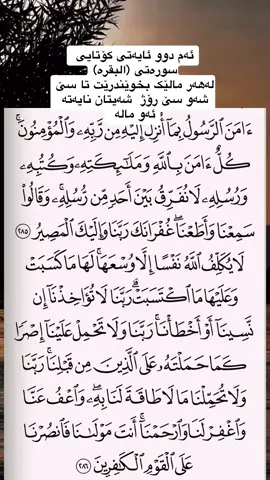 ئەم دوو ئایەتی کۆتایی
سورەتی (البقرە)
لەهەر ماڵێک بخوێندرێت تا سێ
شەو سێ رۆژ شەیتان نایەتە
ئەو ماڵە
ءَامَنَ ٱلرَّسُولُ بِمَآ أُنزِلَ إِلَيْهِ مِن رَّبِّهِۦ وَٱلْمُؤْمِنُونَۚ
كُلٌّ ءَامَنَ بِٱللَّهِ وَمَلَـٰٓئِكَتِهِۦ وَكُتُبِهِۦ
وَرُسُلِهِۦ لَا نُفَرِّقُ بَيْنَ أَحَدٍ مِّن رُّسُلِهِۦۚ وَقَالُوا۟
سَمِعْنَا وَأَطَعْنَاۖ غُفْرَانَكَ رَبَّنَا وَإِلَيْكَ ٱلْمَصِيرُ ٢٨٥
لَا يُكَلِّفُ ٱللَّهُ نَفْسًا إِلَّا وُسْعَهَاۚ لَهَا مَا كَسَبَتْ
وَعَلَيْهَا مَا ٱكْتَسَبَتْۗ رَبَّنَا لَا تُؤَاخِذْنَآ إِن
نَّسِينَآ أَوْ أَخْطَأْنَاۚ رَبَّنَا وَلَا تَحْمِلْ عَلَيْنَآ إِصْرًا
كَمَا حَمَلْتَهُۥ عَلَى ٱلَّذِينَ مِن قَبْلِنَاۚ رَبَّنَا
وَلَا تُحَمِّلْنَا مَا لَا طَاقَةَ لَنَا بِهِۦۖ وَٱعْفُ عَنَّا
وَٱغْفِرْ لَنَا وَٱرْحَمْنَآۚ أَنتَ مَوْلَىٰنَا فَٱنصُرْنَا
عَلَى ٱلْقَوْمِ ٱلْكَـٰفِرِينَ ٢٨٦